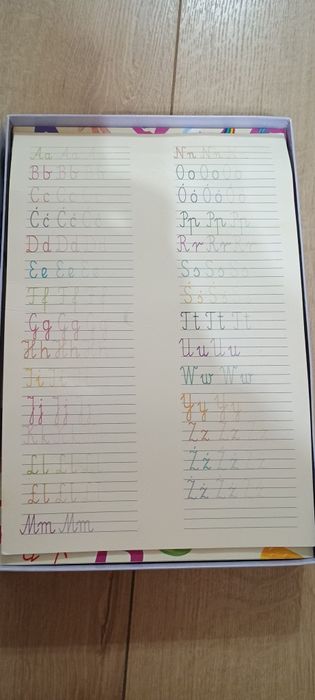 Aa Aa Aa
Bb Bb Bb
Cc Cc Cc
Ćć Ćć Ćć
Dd Dd Dd
Ee Ee Ee
Ff Ff Ff
Gg Gg Gg
Hh Hh Hh
Ii Ii Ii
Jj Jj Jj
Kk Kk Kk
Ll Ll Ll
Ll Ll Ll
Mm Mm
Nn Nn Nn
Oo Oo Oo
Óó Óó Óó
Pp Pp Pp
Rr Rr Rr
Ss Ss Ss
Śś Śś Śś
Tt Tt Tt
Uu Uu
Ww Ww
Yy Yy
Zz Zz Zz
Źź Źź Źź
Żż Żż Żż